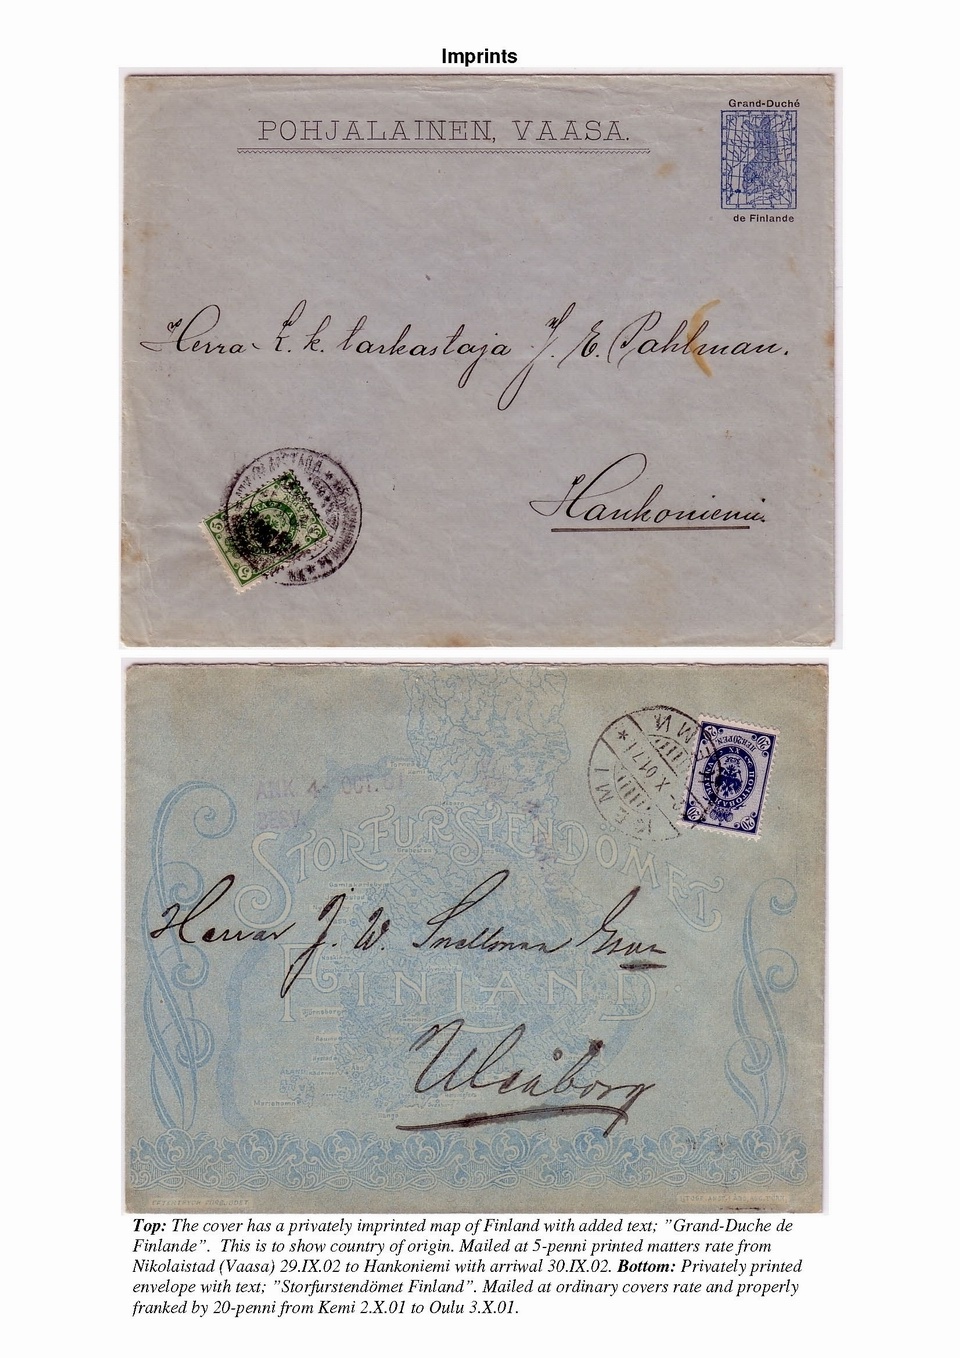 Imprints
Grand-Duché
POHJALAINEN, VAASA.
de Finlande
Herra K. k. tarkastaja J. E. Pahlman.
Hankoniemi.
5
5
20
20
20
KEMI
X 01
ANK 4- OCT. 01
BESV.
STORFURSTENDÖMET
FINLAND.
Herrar J. W. Snellman
Uleåborg
Björneborg
Mariehamn
Top: The cover has a privately imprinted map of Finland with added text; ”Grand-Duche de
Finlande”. This is to show country of origin. Mailed at 5-penni printed matters rate from
Nikolaistad (Vaasa) 29.IX.02 to Hankoniemi with arriwal 30.IX.02. Bottom: Privately printed
envelope with text; ”Storfurstendömet Finland”. Mailed at ordinary covers rate and properly
franked by 20-penni from Kemi 2.X.01 to Oulu 3.X.01.